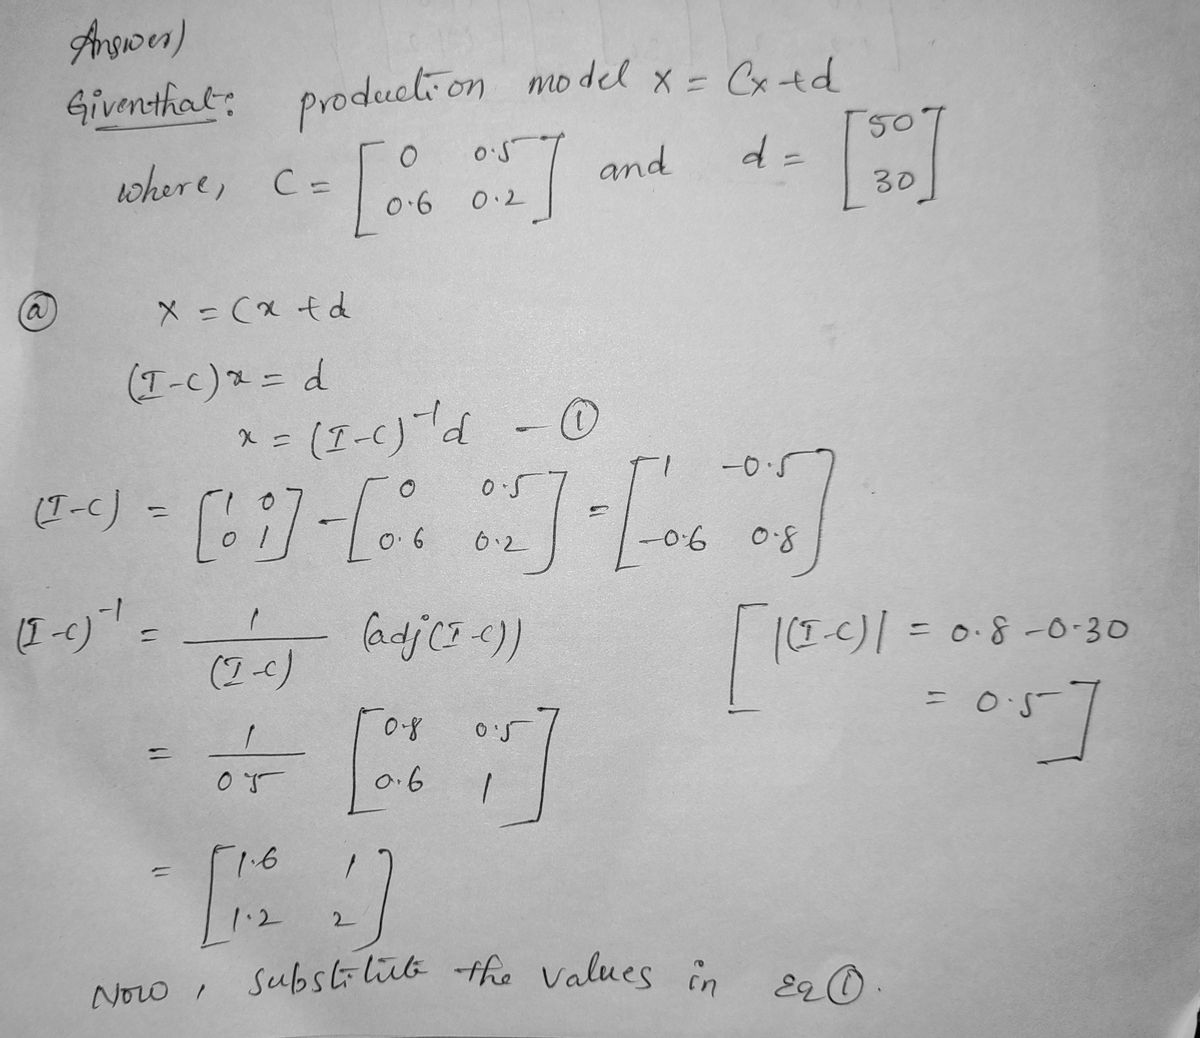 Answer)
Giventhat: production model x = Cx + d
where, C = [0 0.5 0.6 0.2] and d = [50 30]
(a) x = Cx + d
(I-C)x = d
x = (I-C)^-1 d - (1)
(I-C) = [1 0 0 1] - [0 0.5 0.6 0.2] = [1 -0.5 -0.6 0.8]
(I-C)^-1 = 1/(I-C) (adj(I-C)) [|(I-C)| = 0.8 - 0.30
= 0.5]
= 1/0.5 [0.8 0.5 0.6 1]
= [1.6 1 1.2 2]
Now, substitute the values in Eq (1).